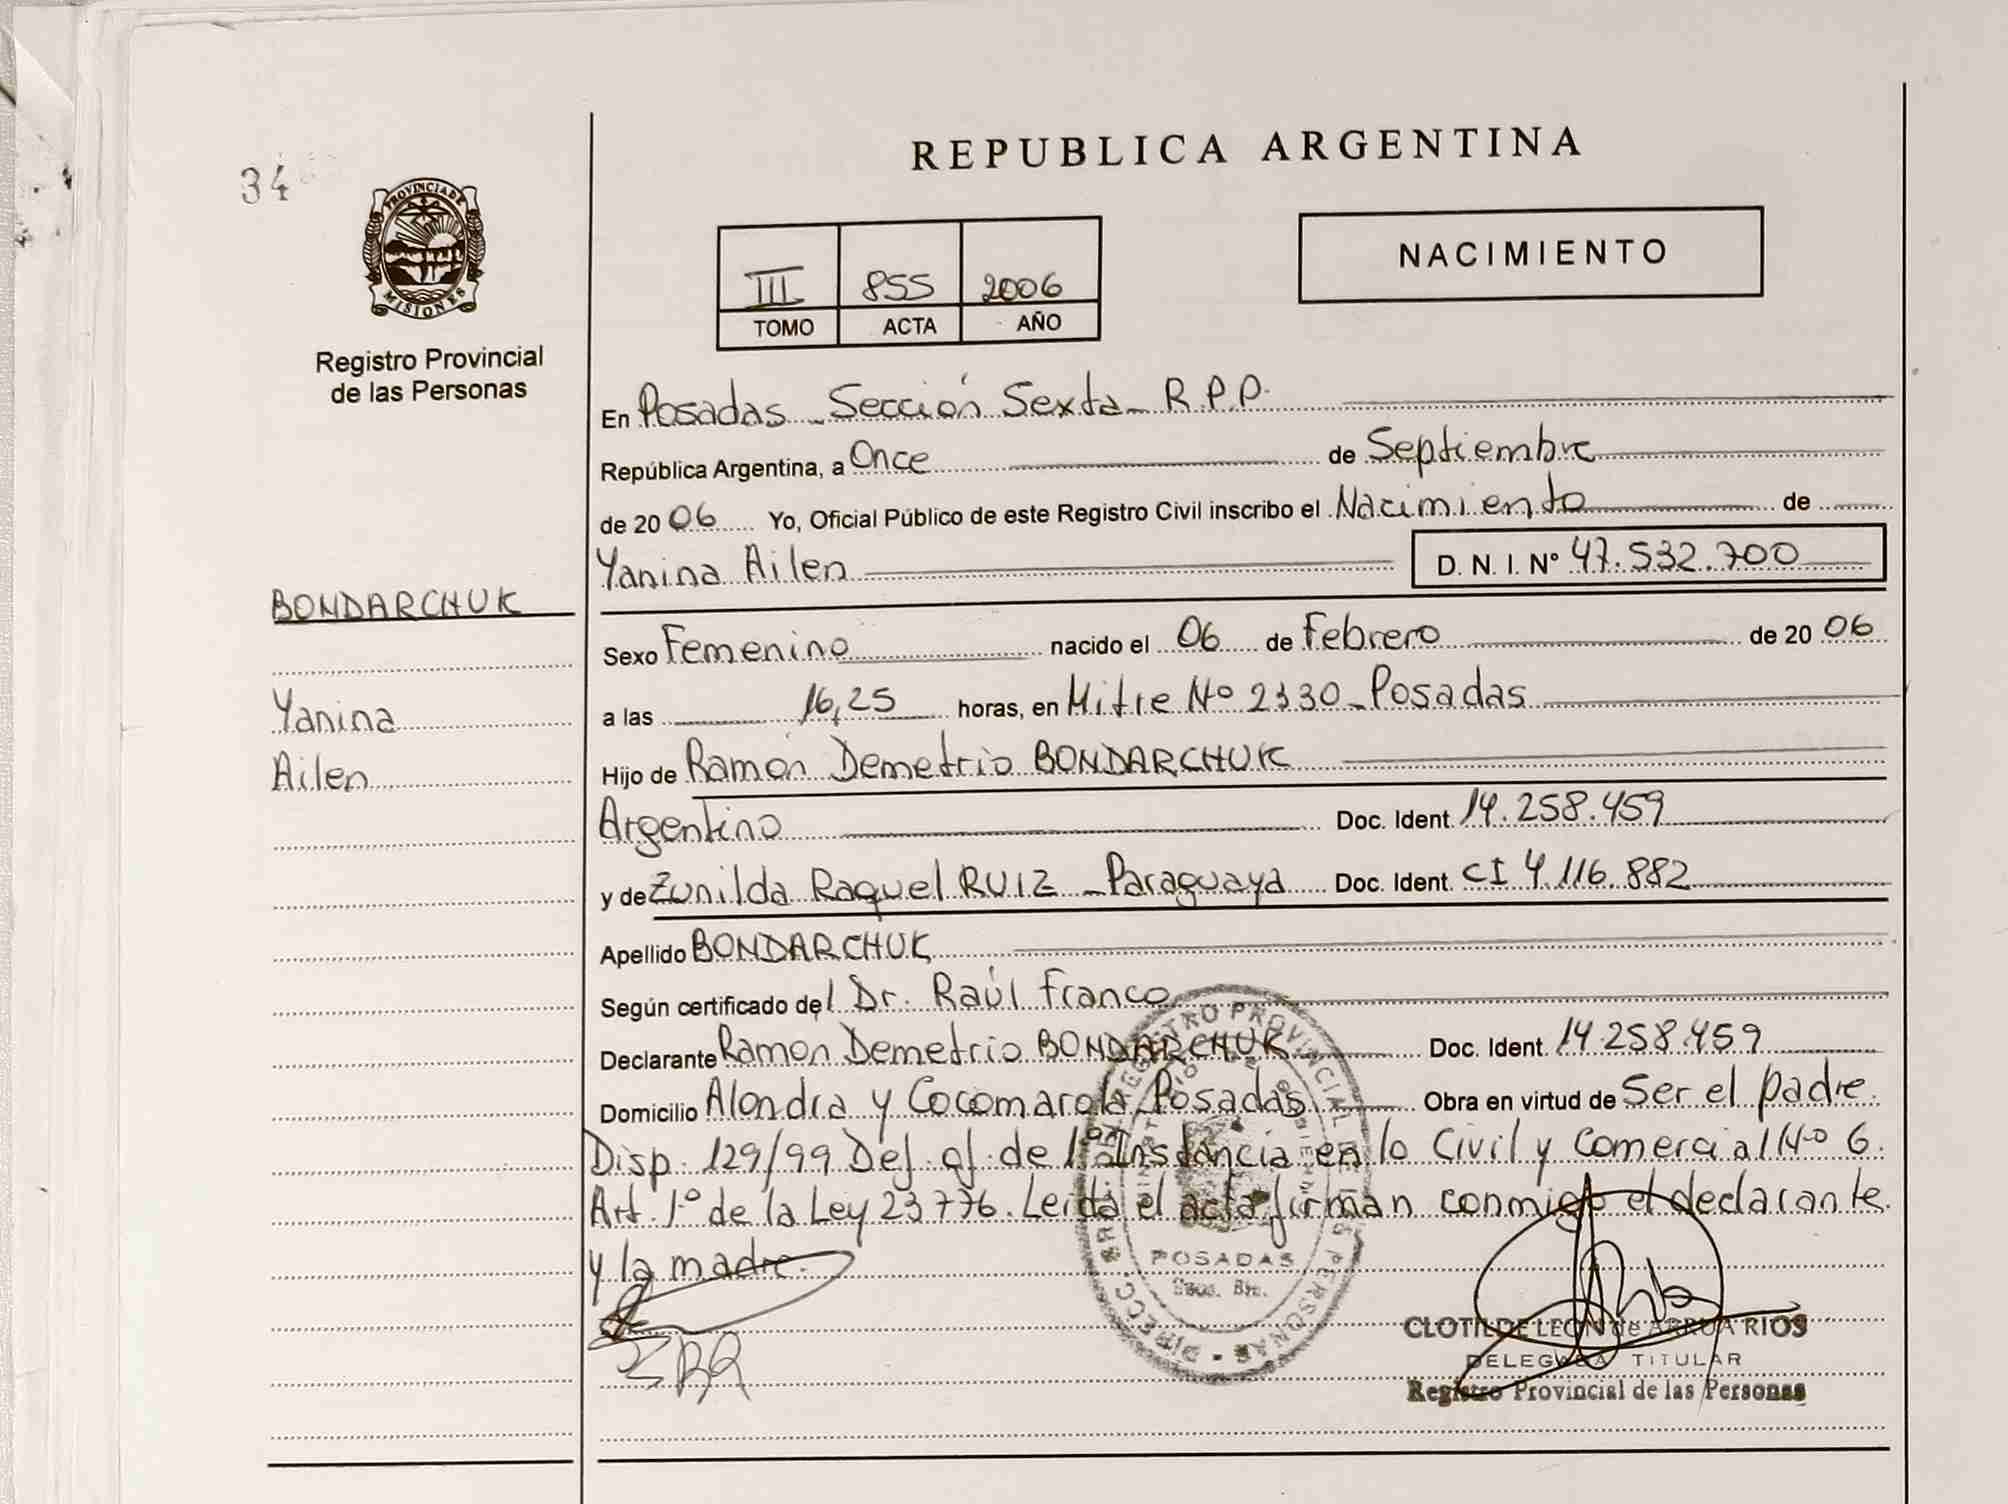 34
REPUBLICA ARGENTINA
PROVINCIA DE
MISIONES
Registro Provincial
de las Personas
III 855 2006
TOMO ACTA AÑO
NACIMIENTO
En Posadas - Sección Sexta - R.P.P.
República Argentina, a Once de Septiembre
de 20 06 Yo, Oficial Público de este Registro Civil inscribo el Nacimiento de
Yanina Ailen D. N. I. Nº 47.532.700
BONDARCHUK
Yanina
Ailen
Sexo Femenino nacido el 06 de Febrero de 20 06
a las 16,25 horas, en Mitre Nº 2330 - Posadas
Hijo de Ramón Demetrio BONDARCHUK
Argentino Doc. Ident. 14.258.459
y de Zunilda Raquel RUIZ - Paraguaya Doc. Ident. CI 4.116.882
Apellido BONDARCHUK
Según certificado del Dr. Raúl Franco
Declarante Ramon Demetrio BONDARCHUK Doc. Ident. 14.258.459
Domicilio Alondra y Cocomarola, Posadas Obra en virtud de Ser el padre.
Disp. 129/99 Def. of. de 1º Instancia en lo Civil y Comercial Nº 6.
Art. 1º de la Ley 23776. Leída el acta firman conmigo el declarante
y la madre.
POSADAS
CLOTILDE LEON de ARRUA RIOS
DELEGADA TITULAR
Registro Provincial de las Personas